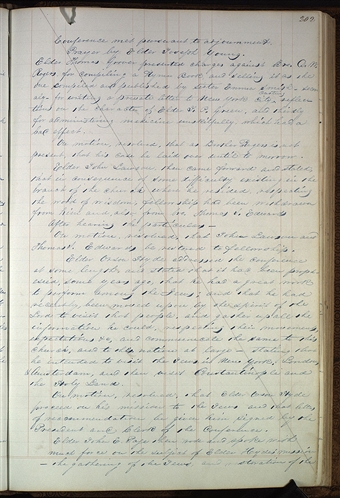 209
Conference met pursuant to adjournment.
Prayer by Elder Joseph Young.
Elder Thomas Grover presented charges against Bro. D. W.
Rogers for compiling a Hymn Book and selling it as the
one compiled and published by Sister Emma Smith, sec-
for writing a private letter to New York City
on the character of Elder
for administering medicine unskilfully which had a
bad effect.
On motion, resolved, that as Brother Rogers is not
present, that his case be laid over until to-morrow.
Elder John Lawson then came forward and stated
that in consequence of some difficulty existing in the
branch of the church where he resided, respecting
the word of wisdom, fellowship had been withdrawn
from him and also from Bro. Thomas S. Edwards
After hearing the
On motion, resolved, that John Lawson and
Thomas S. Edwards be restored to fellowship.
Elder Orson Hyde addressed the Conference
at some length, and stated that it had been proph-
esied, some years ago, that he had a great work
to perform among the Jews; and that he had
recently been moved upon by the spirit of the
Lord to visit that people, and gather up all the
information he could, respecting their movements,
expectations &c, and communicate the same to this
church, and to the nation at large; stating that
he intended to visit the Jews in New York, London,
Amsterdam, and then visit Constantinople and
the Holy Land.
On motion, resolved, that Elder Orson Hyde
proceed on his mission to the Jews and that letters
of recommendation be given him, signed by the
President and Clerk of the Conference.
Elder John E. Page then rose and spoke with
much force on the subject of Elder Hyde's mission
the gathering of the Jews, and restoration of the